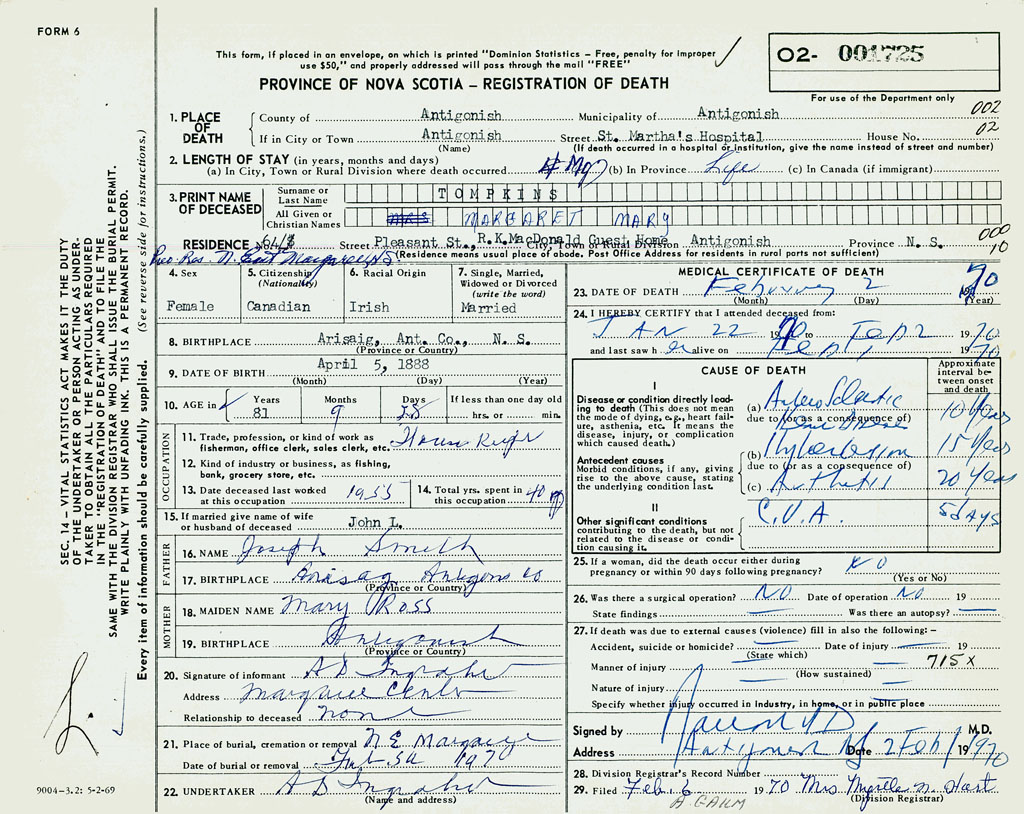 FORM 6
This form, if placed in an envelope, on which is printed "Dominion Statistics – Free, penalty for improper
use $50," and properly addressed will pass through the mail "FREE"
02- 001725
PROVINCE OF NOVA SCOTIA – REGISTRATION OF DEATH
For use of the Department only
1. PLACE OF DEATH
County of Antigonish Municipality of Antigonish 002
If in City or Town Antigonish Street St. Martha's Hospital House No. 02
(Name) (If death occurred in a hospital or institution, give the name instead of street and number)
2. LENGTH OF STAY (in years, months and days)
(a) In City, Town or Rural Division where death occurred (b) In Province Life (c) In Canada (if immigrant)
3. PRINT NAME OF DECEASED
Surname or Last Name TOMPKINS
All Given or Christian Names MRS MARGARET MARY
RESIDENCE Street Pleasant St., R.K.MacDonald Guest Home, City, Town or Rural Division Antigonish Province N. S. 000
10
(Residence means usual place of abode. Post Office Address for residents in rural parts not sufficient)
Prev. Res. N. East Margaree N.S.
4. Sex
Female
5. Citizenship (Nationality)
Canadian
6. Racial Origin
Irish
7. Single, Married, Widowed or Divorced (write the word)
Married
8. BIRTHPLACE Arisaig, Ant. Co., N. S.
(Province or Country)
9. DATE OF BIRTH April 5, 1888
(Month) (Day) (Year)
10. AGE in Years 81 Months 9 Days 28 If less than one day old hrs. or min.
OCCUPATION
11. Trade, profession, or kind of work as fisherman, office clerk, sales clerk, etc.
12. Kind of industry or business, as fishing, bank, grocery store, etc.
13. Date deceased last worked at this occupation 1955
14. Total yrs. spent in this occupation 40
15. If married give name of wife or husband of deceased John L.
FATHER
16. NAME Joseph Smith
17. BIRTHPLACE Arisag Antigonish Co
(Province or Country)
MOTHER
18. MAIDEN NAME Mary Ross
19. BIRTHPLACE Antigonish
(Province or Country)
20. Signature of informant A D Ingraham
Address Margaree Centre
Relationship to deceased none
21. Place of burial, cremation or removal N E Margaree
Date of burial or removal Feb 5th 1970
22. UNDERTAKER A D Ingraham
(Name and address)
MEDICAL CERTIFICATE OF DEATH
23. DATE OF DEATH February 2 1970
(Month) (Day) (Year)
24. I HEREBY CERTIFY that I attended deceased from:
JAN 22 70 to Feb 2 1970
and last saw her alive on Feb 1 1970
CAUSE OF DEATH
Approximate interval between onset and death
I
Disease or condition directly leading to death (This does not mean the mode of dying, e.g., heart failure, asthenia, etc. It means the disease, injury, or complication which caused death.)
(a) Arterosclerotic 10 Years
due to (or as a consequence of)
Antecedent causes
Morbid conditions, if any, giving rise to the above cause, stating the underlying condition last.
(b) Hypertension 15 Years
due to (or as a consequence of)
(c) 20 Years
II
Other significant conditions contributing to the death, but not related to the disease or condition causing it.
C.V.A. 5 days
25. If a woman, did the death occur either during pregnancy or within 90 days following pregnancy? NO
(Yes or No)
26. Was there a surgical operation? NO Date of operation NO 19
State findings Was there an autopsy?
27. If death was due to external causes (violence) fill in also the following: –
Accident, suicide or homicide? Date of injury 19
(State which) 715 X
Manner of injury
(How sustained)
Nature of injury
Specify whether injury occurred in industry, in home, or in public place
Signed by M.D.
Address Antigonish NS Date 2 Feb 1970
28. Division Registrar's Record Number
29. Filed Feb. 6 1970 Mrs Myrtle N. Hart
(Division Registrar)
SEC. 14 – VITAL STATISTICS ACT MAKES IT THE DUTY
OF THE UNDERTAKER OR PERSON ACTING AS UNDER-
TAKER TO OBTAIN ALL THE PARTICULARS REQUIRED
IN THE "REGISTRATION OF DEATH" AND TO FILE THE
SAME WITH THE DIVISION REGISTRAR WHO SHALL ISSUE THE BURIAL PERMIT.
WRITE PLAINLY WITH UNFADING INK. THIS IS A PERMANENT RECORD.
Every item of information should be carefully supplied. (See reverse side for instructions.)
9004-3.2: 5-2-69